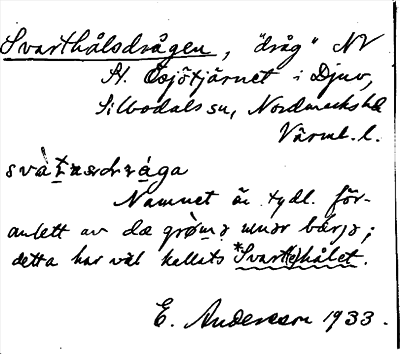 Svarthålsdrågen, "dråg" NV
St. Ösjötjärnet i Djuv,
Silbodals sn, Nordmarks hd
Värml. l.
Namnet är tydl. för-
anlett av dæ grøma unər bärjə;
detta har väl kallats *Svart(e)hålet.
E. Andersson 1933.